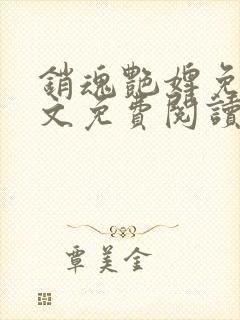 銷魂艷婢免
文免費閱讀
覃美金